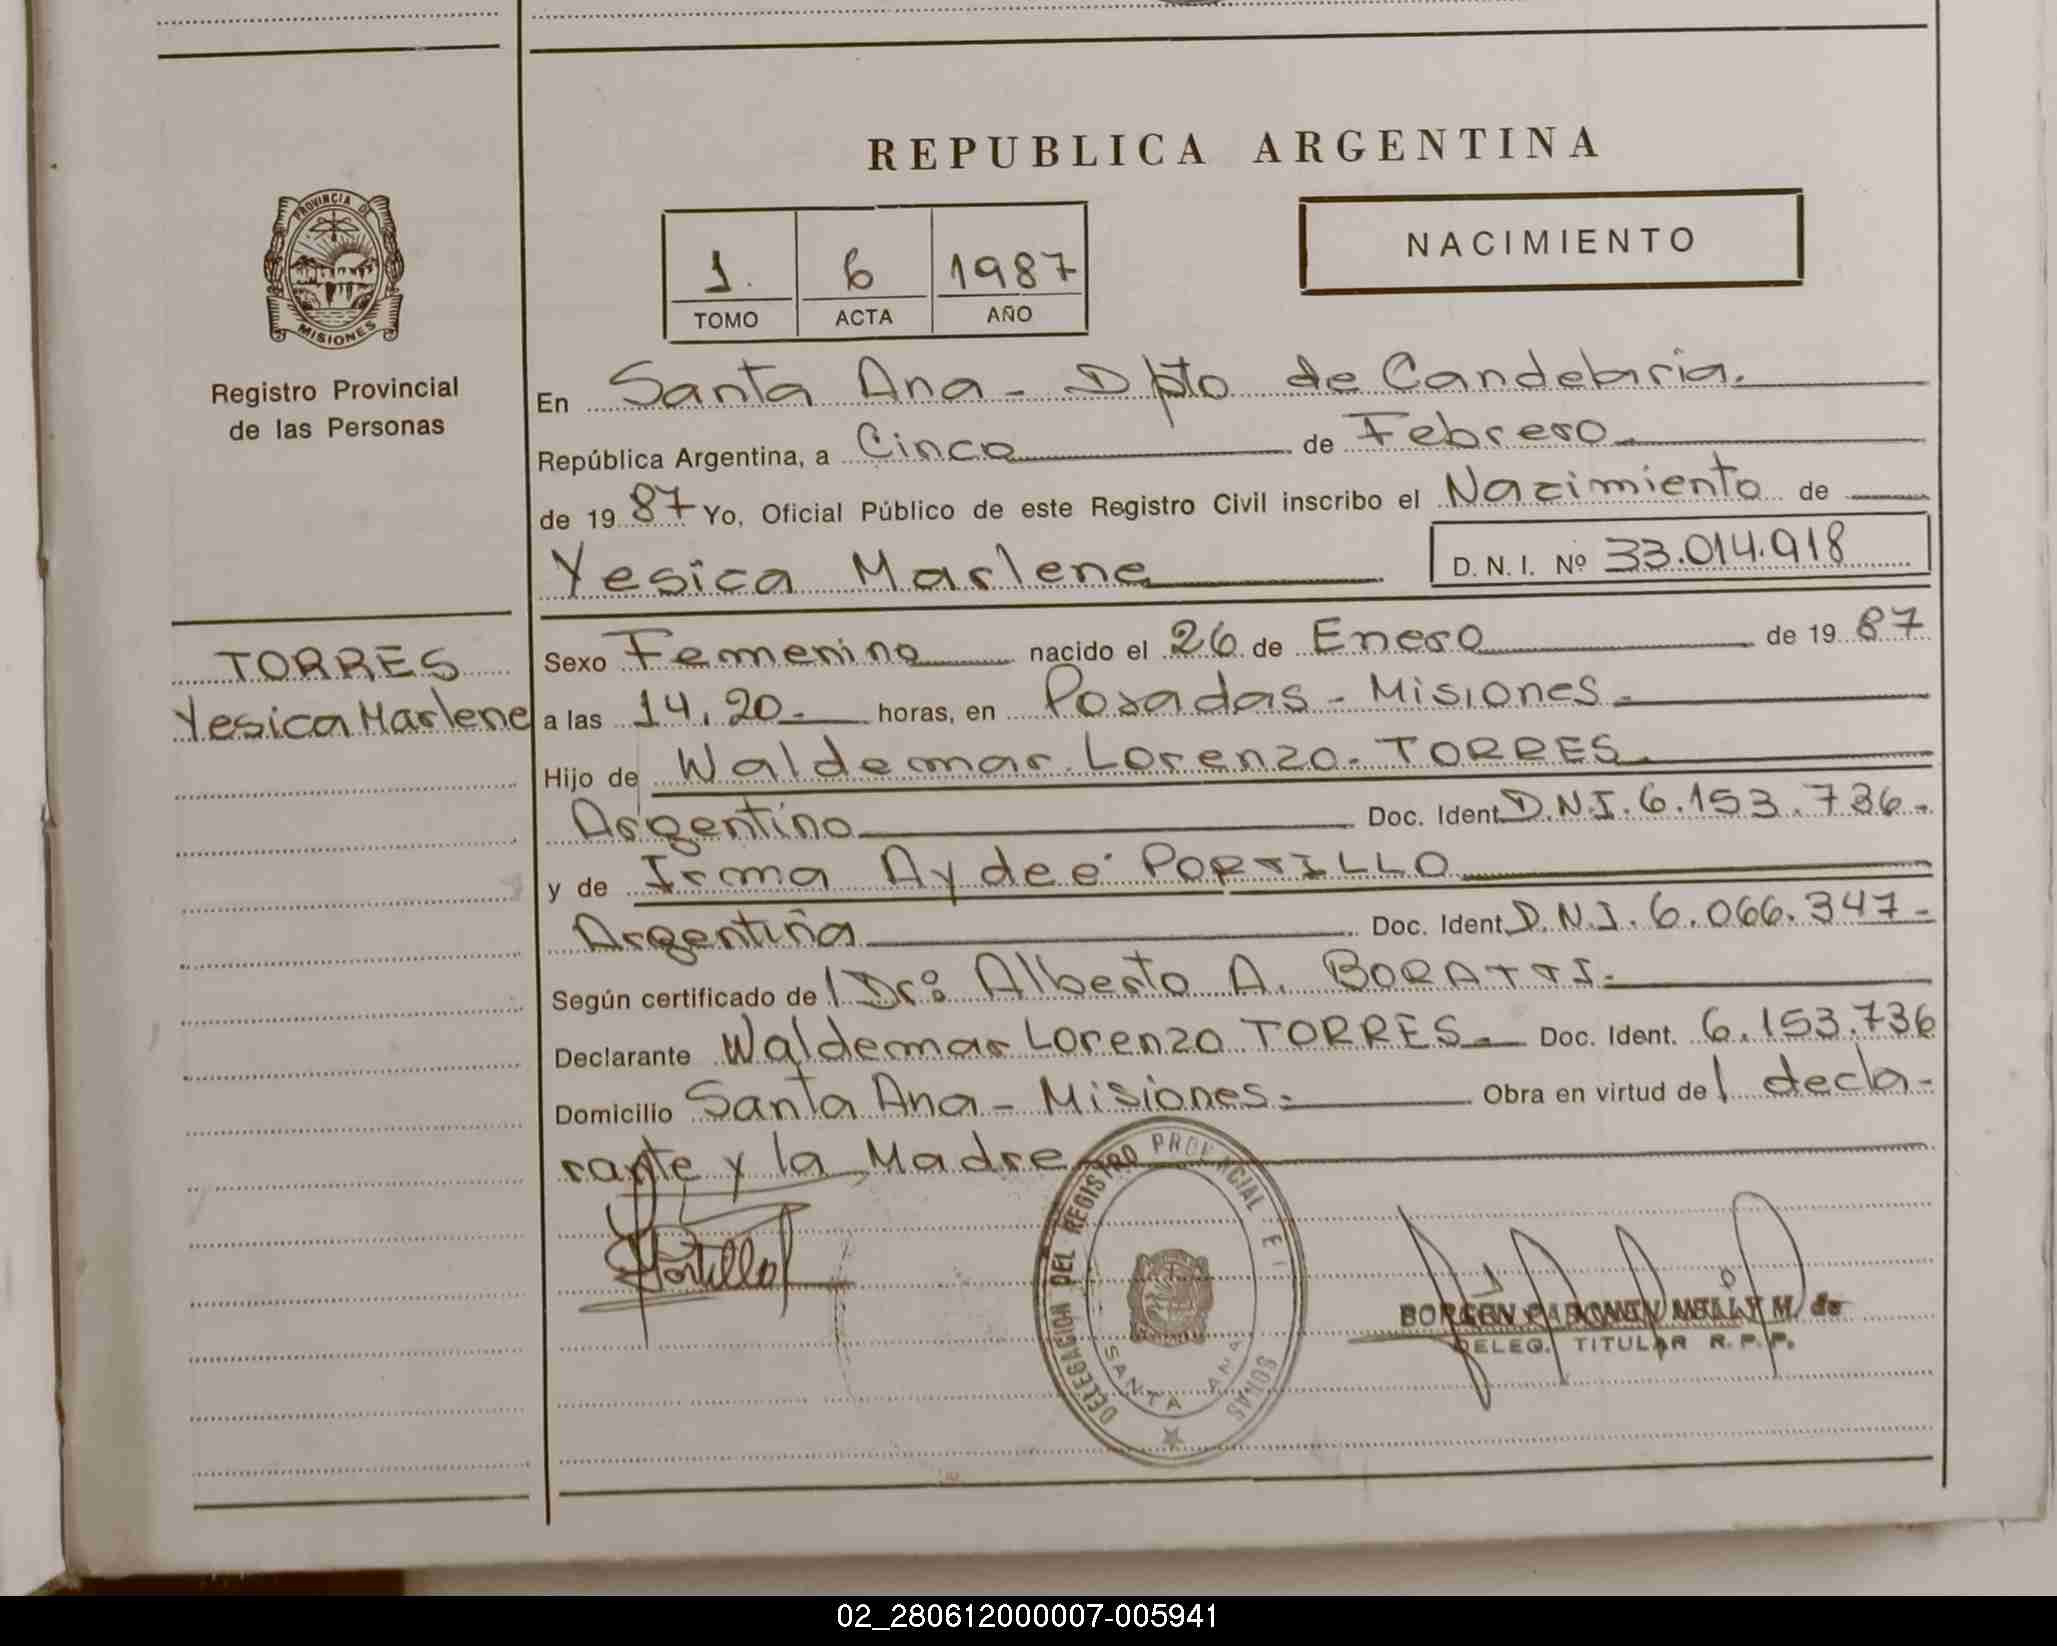 REPUBLICA ARGENTINA
PROVINCIA DE
MISIONES
Registro Provincial
de las Personas
1. 6 1987
TOMO ACTA AÑO
NACIMIENTO
En Santa Ana - Dpto de Candelaria.
República Argentina, a Cinco de Febrero
de 1987 Yo, Oficial Público de este Registro Civil inscribo el Nacimiento de
Yesica Marlene D. N. I. Nº 33.014.918
TORRES
Yesica Marlene
Sexo Femenino nacido el 26 de Enero de 1987
a las 14,20- horas, en Posadas - Misiones-
Hijo de Waldemar Lorenzo - TORRES
Argentino Doc. Ident. D.N.I. 6.153.736-
y de Irma Aydeé PORTILLO
Argentina Doc. Ident. D.N.I. 6.066.347-
Según certificado de l Dr: Alberto A. BORATTI-
Declarante Waldemar Lorenzo TORRES- Doc. Ident. 6.153.736
Domicilio Santa Ana - Misiones- Obra en virtud de l decla-
rante y la Madre
Portillo
DELEGACION DEL REGISTRO PROVINCIAL
SANTA ANA
M. de
DELEG. TITULAR R. P. P.
02_280612000007-005941